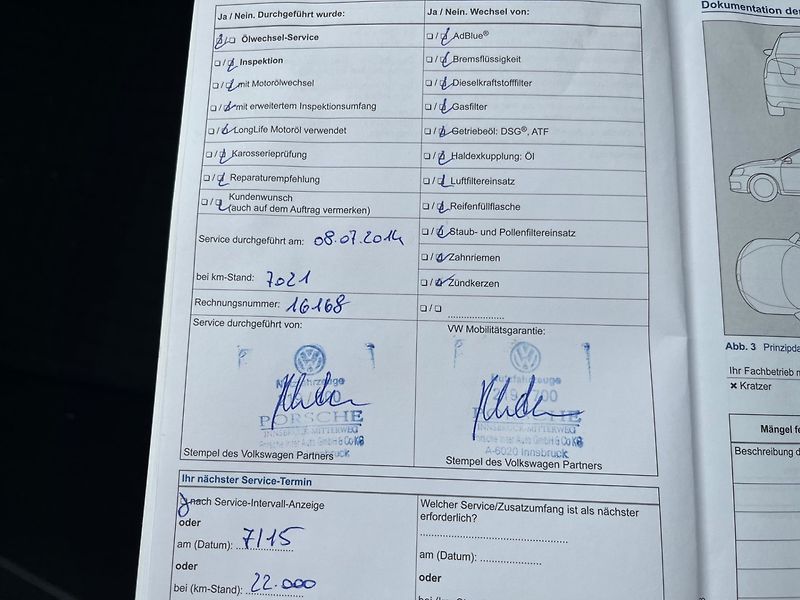 Ja / Nein. Durchgeführt wurde:
Ölwechsel-Service
Inspektion
mit Motorölwechsel
mit erweitertem Inspektionsumfang
LongLife Motoröl verwendet
Karosserieprüfung
Reparaturempfehlung
Kundenwunsch
(auch auf dem Auftrag vermerken)
Service durchgeführt am: 08.07.2014
bei km-Stand: 7021
Rechnungsnummer: 16168
Service durchgeführt von:
PORSCHE
INNSBRUCK-MITTERWEG
Porsche Inter Auto GmbH & Co KG
Stempel des Volkswagen Partners
Ja / Nein. Wechsel von:
AdBlue®
Bremsflüssigkeit
Dieselkraftstofffilter
Gasfilter
Getriebeöl: DSG®, ATF
Haldexkupplung: Öl
Luftfiltereinsatz
Reifenfüllflasche
Staub- und Pollenfiltereinsatz
Zahnriemen
Zündkerzen
VW Mobilitätsgarantie:
Nutzfahrzeuge
PORSCHE
INNSBRUCK-MITTERWEG
Porsche Inter Auto GmbH & Co KG
A-6020 Innsbruck
Stempel des Volkswagen Partners
Ihr nächster Service-Termin
nach Service-Intervall-Anzeige
oder
am (Datum): 7/15
oder
bei (km-Stand): 22.000
Welcher Service/Zusatzumfang ist als nächster
erforderlich?
am (Datum):
oder
Dokumentation
Abb. 3
Ihr Fachbetrieb
× Kratzer
Mängel
Beschreibung